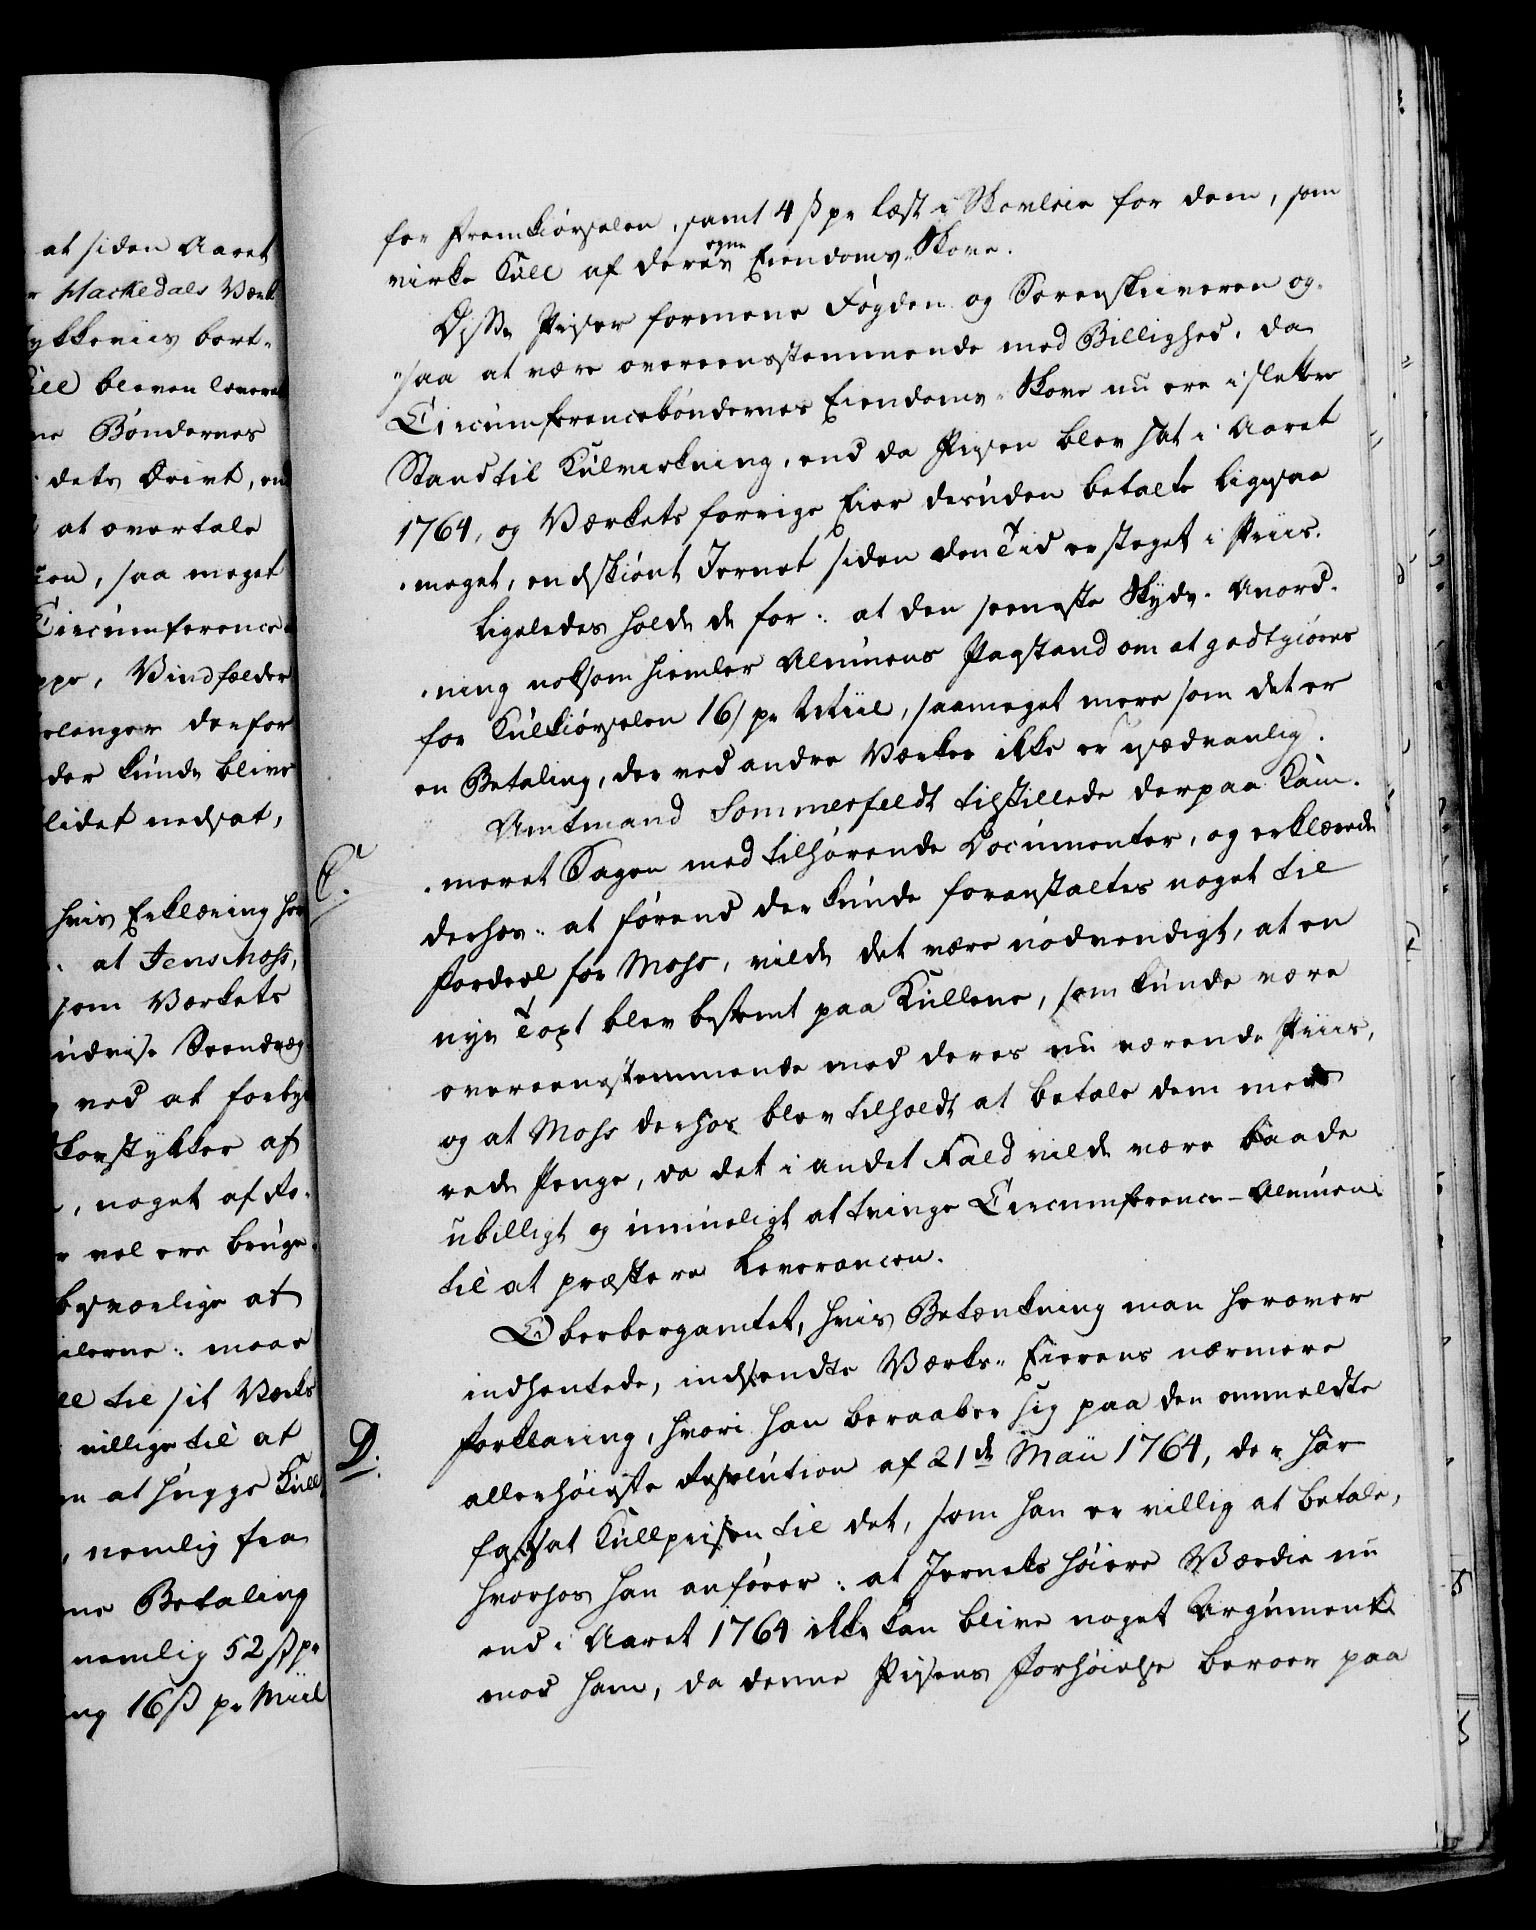 at siden Aaret
Hackedals Værk
ykkeriis bort-
ill bleven leveret
ne Böndernes
dets Drivt, end
at overtale
ion, saa meget
Circumference
ppe, Vindfælder
elanger derfor
der kunde blive
lidet nedsat,
hvis Erklæring her
at Jens Moss,
som Værkets
udvise
ved at forby
kovstykker af
, noget af
vel ere brüge
besværlige at
ilerne: maae
ll til sit Værks
villige til at
n at hugge Kull
, nemlig fra
ne Betaling
nemlig 52 ß pr
ng 16 ß pr Miil
for Fremkiörselen, samt 4 ß pr Læst i Skovleie for dem, som
virke Kull af deres egne Eiendoms-Skove.
Disse Priser formene Fogden og Sorenskriveren og-
"saa at være overeensstemmende med Billighed, da
Circumferenceböndernes Eiendoms-Skove nu ere i slettere
Stand til Kulvirkning, end da Prisen blev sat i Aaret
1764, og Værkets forrige Eier desuden betalte ligesaa
meget, endskiönt Jernet siden den Tid er steget i Priis.
Ligeledes holde de for: at den seeneste Skyds-Anord-
ning noksom hiemler Almuens Paastand om at godtgiöres
for Kulkiörselen 16 ß pr Miil, saameget mere som det er
en Betaling, der ved andre Værker ikke er usædvanlig.
C. Amtmand Sommerfeldt tilstillede derpaa Kam-
meret Sagen med tilhörende Documenter, og erklærede
derhos: at förend der kunde foranstaltes noget til
Fordeel for Moss, vilde det være nödvendigt, at en
nye Taxt blev bestemt paa Kullene, som kunde være
overeensstemmende med deres nu værende Priis,
og at Moss derhos blev tilholdt at betale dem med
rede Penge, da det i andet Fald vilde være baade
ubilligt og umueligt at tvinge Circumference-Almuen
til at præstere Leverancen.
Oberbergamtet, hvis Betænkning man herover
indhentede, indsendte Værks-Eierens nærmere
D. Forklaring, hvori han beraaber sig paa den ommeldte
allerhöieste Resolution af 21de Maii 1764, der har
fastsat Kullprisen til det, som han er villig at betale,
hvorhos han anförer: at Jernets höiere Værdie nu
end i Aaret 1764 ikke kan blive noget Argument
mod ham, da denne Prisens Forhöielse beroer paa